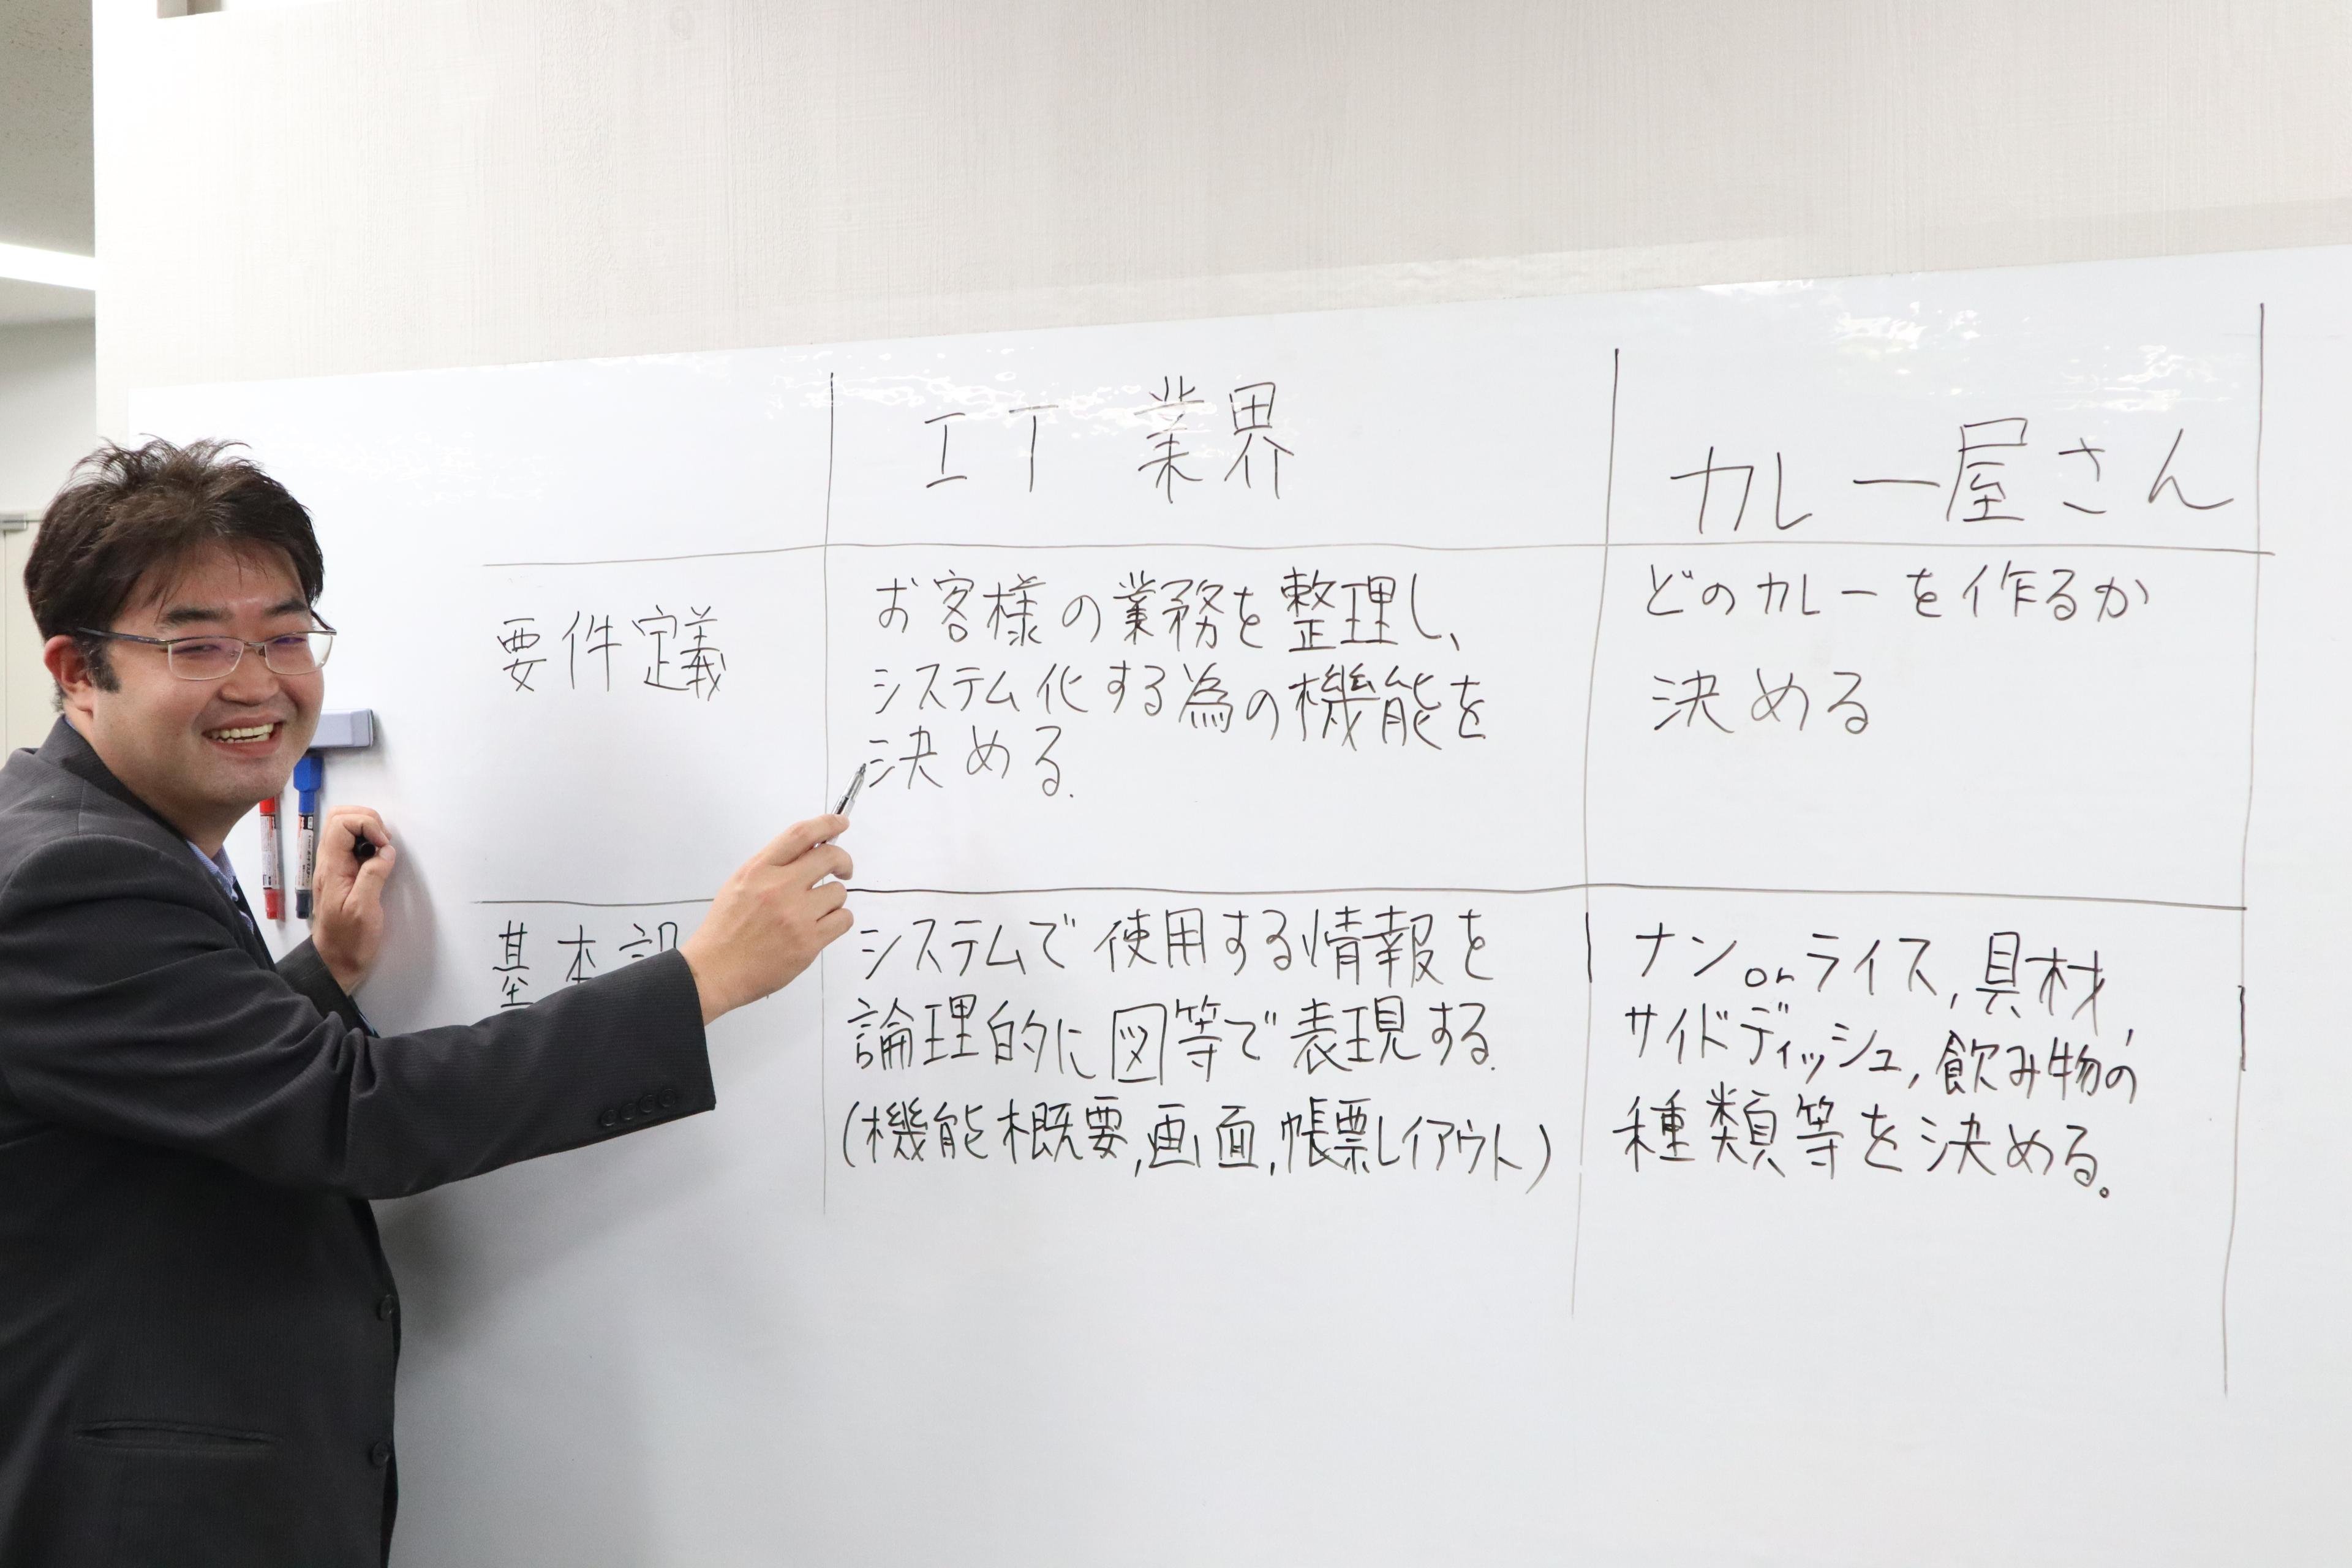 IT 業界
カレー屋さん
要件定義
お客様の業務を整理し、
システム化する為の機能を
決める.
どのカレーを作るか
決める
基本設
システムで使用する情報を
論理的に図等で表現する.
(機能概要,画面,帳票レイアウト)
ナンorライス,具材,
サイドディッシュ,飲み物の
種類等を決める。